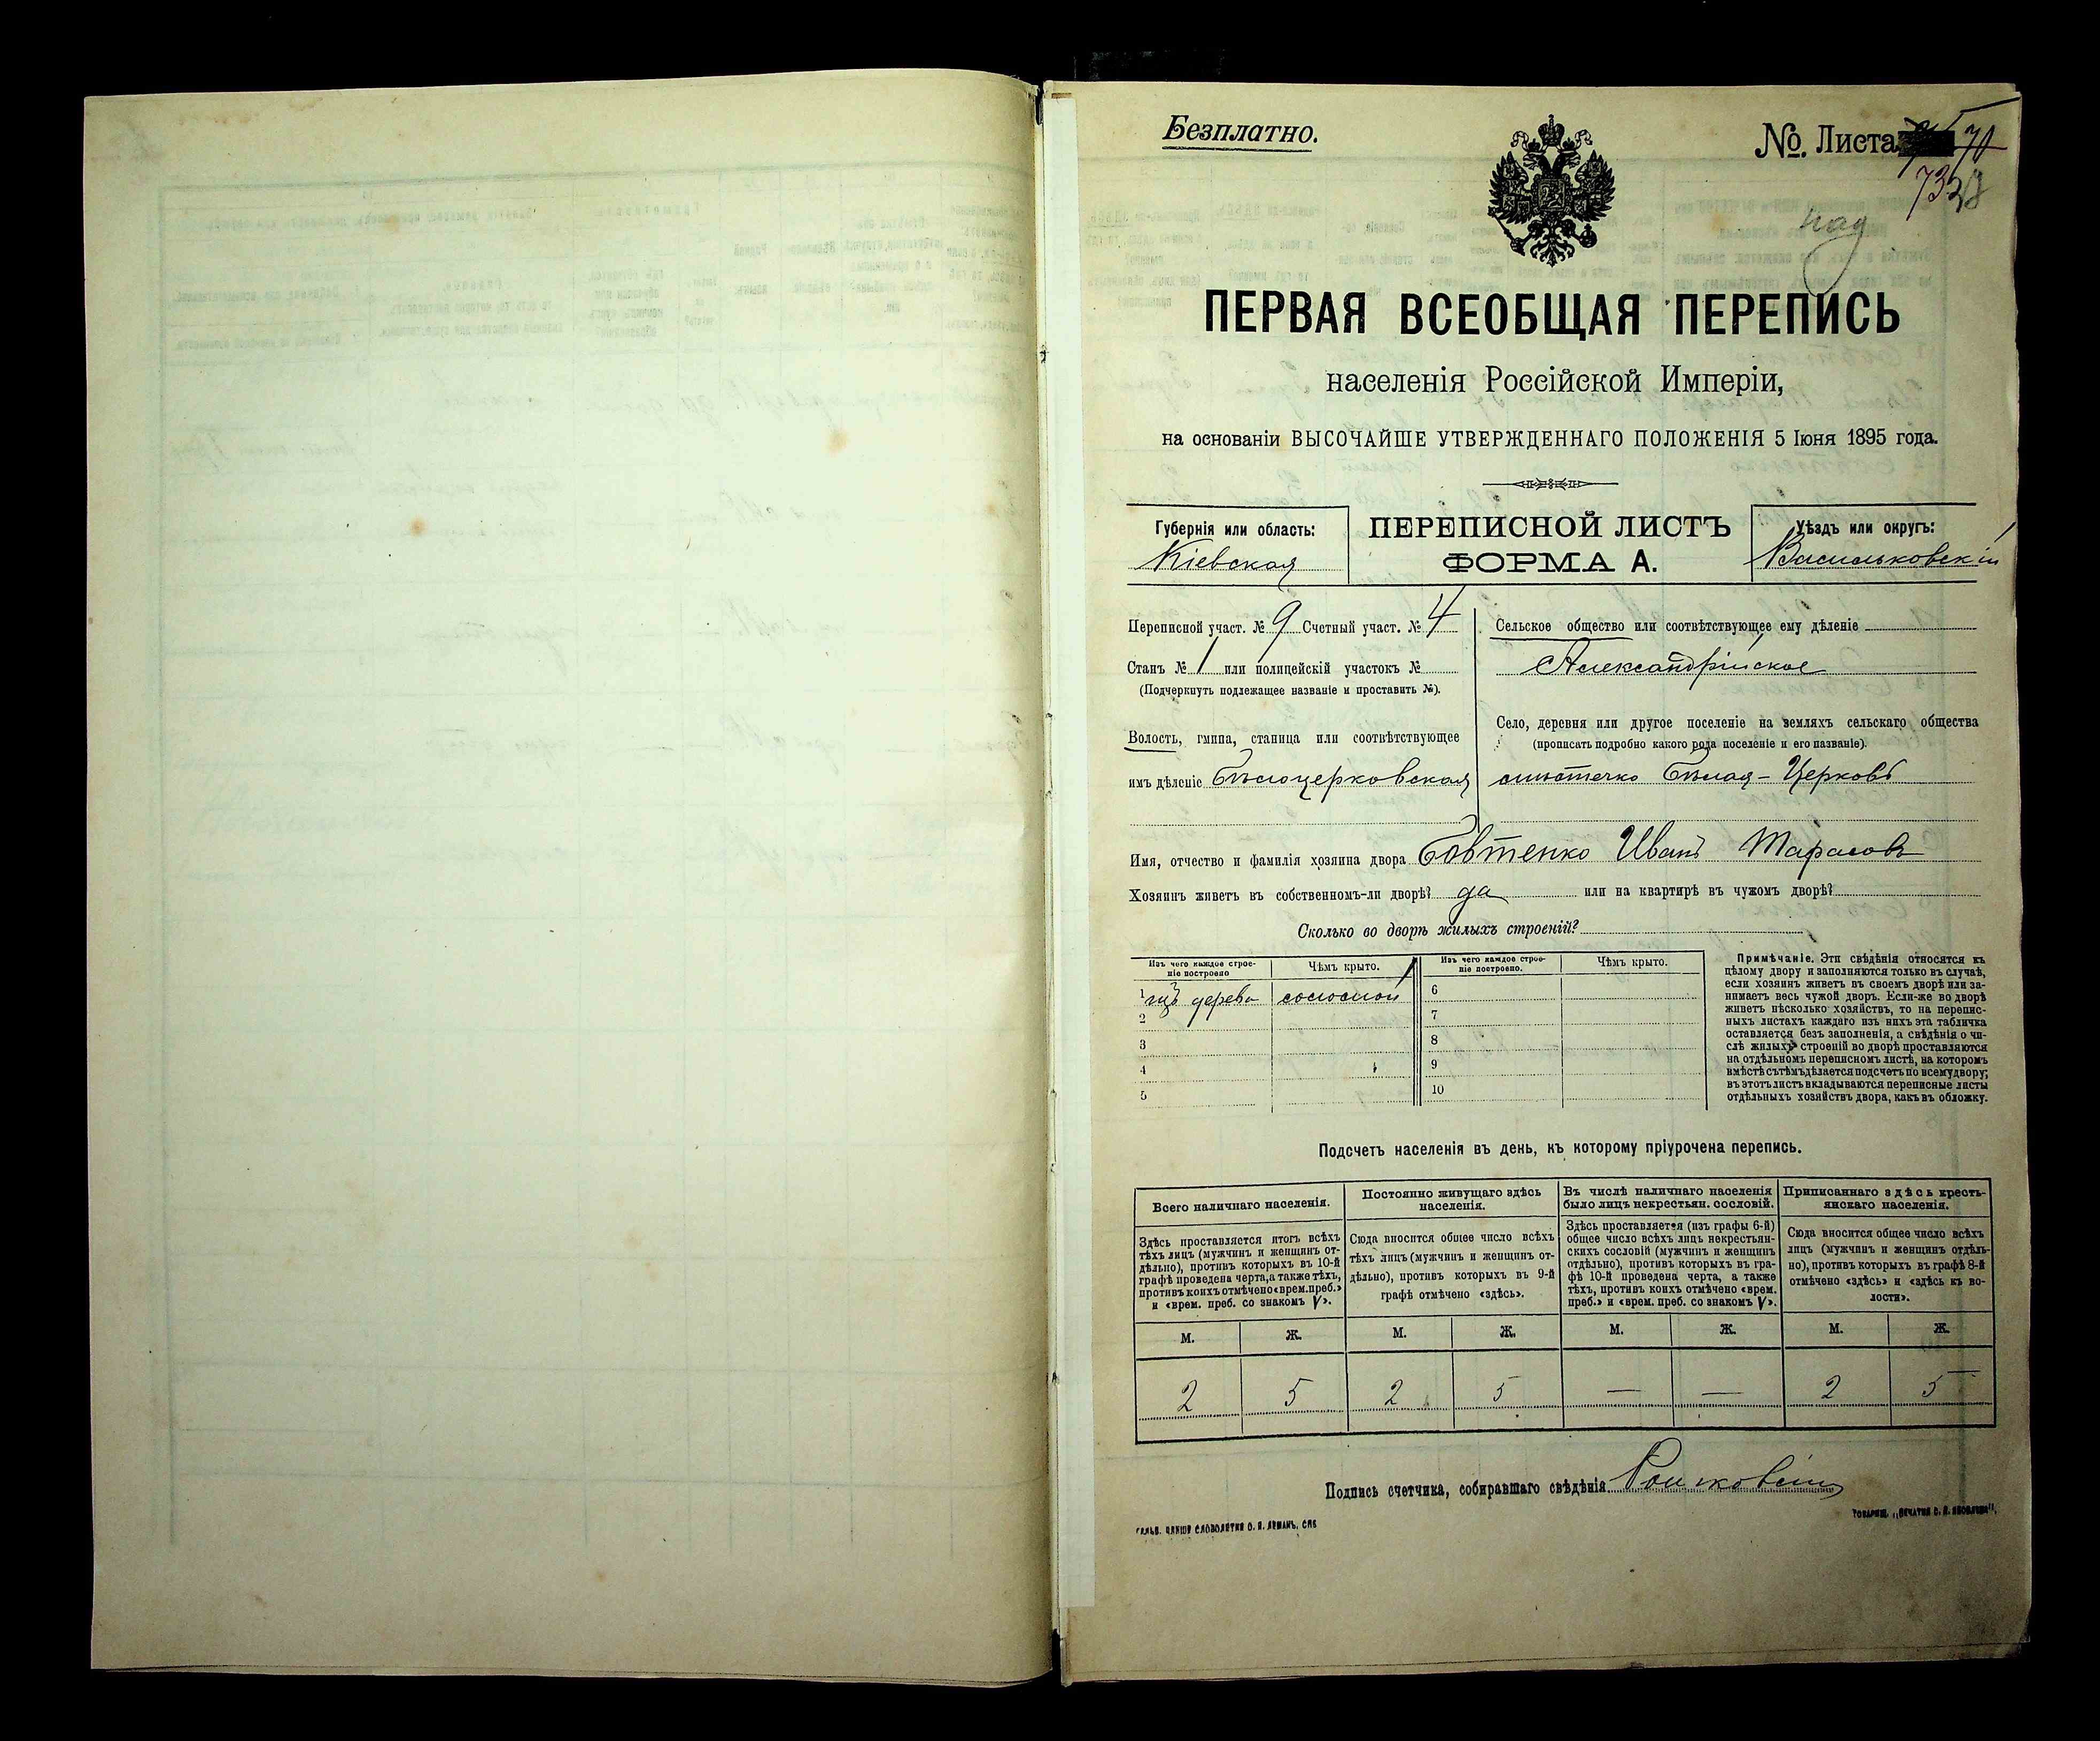 Безплатно.
№. Листа 70
73
над
ПЕРВАЯ ВСЕОБЩАЯ ПЕРЕПИСЬ
населенія Россійской Имперіи,
на основаніи ВЫСОЧАЙШЕ УТВЕРЖДЕННАГО ПОЛОЖЕНІЯ 5 Іюня 1895 года.
Губернія или область:
Кіевская
ПЕРЕПИСНОЙ ЛИСТЪ
ФОРМА А.
Уѣздъ или округъ:
Васильковскій
Переписной участ. № 9 Счетный участ. № 4
Станъ № 1 или полицейскій участокъ №
(Подчеркнуть подлежащее названіе и проставить №).
Волость, гмина, станица или соотвѣтствующее
имъ дѣленіе Бѣлоцерковская
Сельское общество или соотвѣтствующее ему дѣленіе
Александрійское
Село, деревня или другое поселеніе на земляхъ сельскаго общества
(прописать подробно какого рода поселеніе и его названіе).
мѣстечко Бѣлая-Церковь
Имя, отчество и фамилія хозяина двора Бовтенко Иванъ Тарасовъ
Хозяинъ живетъ въ собственномъ-ли дворѣ? да или на квартирѣ въ чужомъ дворѣ?
Сколько во дворѣ жилыхъ строеній?
Изъ чего каждое строе-
ніе построено
Чѣмъ крыто.
Изъ чего каждое строе-
ніе построено.
Чѣмъ крыто.
1 изъ дерева соломой
2
3
4
5
6
7
8
9
10
Примѣчаніе. Эти свѣдѣнія относятся къ
цѣлому двору и заполняются только въ случаѣ,
если хозяинъ живетъ въ своемъ дворѣ или за-
нимаетъ весь чужой дворъ. Если-же во дворѣ
живетъ нѣсколько хозяйствъ, то на перепис-
ныхъ листахъ каждаго изъ нихъ эта табличка
оставляется безъ заполненія, а свѣдѣнія о чи-
слѣ жилыхъ строеній во дворѣ проставляются
на отдѣльномъ переписномъ листѣ, на которомъ
вмѣстѣ съ тѣмъ дѣлается подсчетъ по всему двору;
въ этотъ листъ вкладываются переписные листы
отдѣльныхъ хозяйствъ двора, какъ въ обложку.
Подсчетъ населенія въ день, къ которому пріурочена перепись.
Всего наличнаго населенія.
Здѣсь проставляется итогъ всѣхъ
тѣхъ лицъ (мужчинъ и женщинъ от-
дѣльно), противъ которыхъ въ 10-й
графѣ проведена черта, а также тѣхъ,
противъ коихъ отмѣчено «врем. преб.»
и «врем. преб. со знакомъ V».
Постоянно живущаго здѣсь
населенія.
Сюда вносится общее число всѣхъ
тѣхъ лицъ (мужчинъ и женщинъ от-
дѣльно), противъ которыхъ въ 9-й
графѣ отмѣчено «здѣсь».
Въ числѣ наличнаго населенія
было лицъ некрестьян. сословій.
Здѣсь проставляется (изъ графы 6-й)
общее число всѣхъ лицъ некрестьян-
скихъ сословій (мужчинъ и женщинъ
отдѣльно), противъ которыхъ въ гра-
фѣ 10-й проведена черта, а также
тѣхъ, противъ коихъ отмѣчено «врем.
преб.» и «врем. преб. со знакомъ V».
Приписаннаго здѣсь кресть-
янскаго населенія.
Сюда вносится общее число всѣхъ
лицъ (мужчинъ и женщинъ отдѣль-
но), противъ которыхъ въ графѣ 8-й
отмѣчено «здѣсь» и «здѣсь къ во-
лости».
М. Ж. М. Ж. М. Ж. М. Ж.
2 5 2 5 — — 2 5
Подпись счетчика, собиравшаго свѣдѣнія